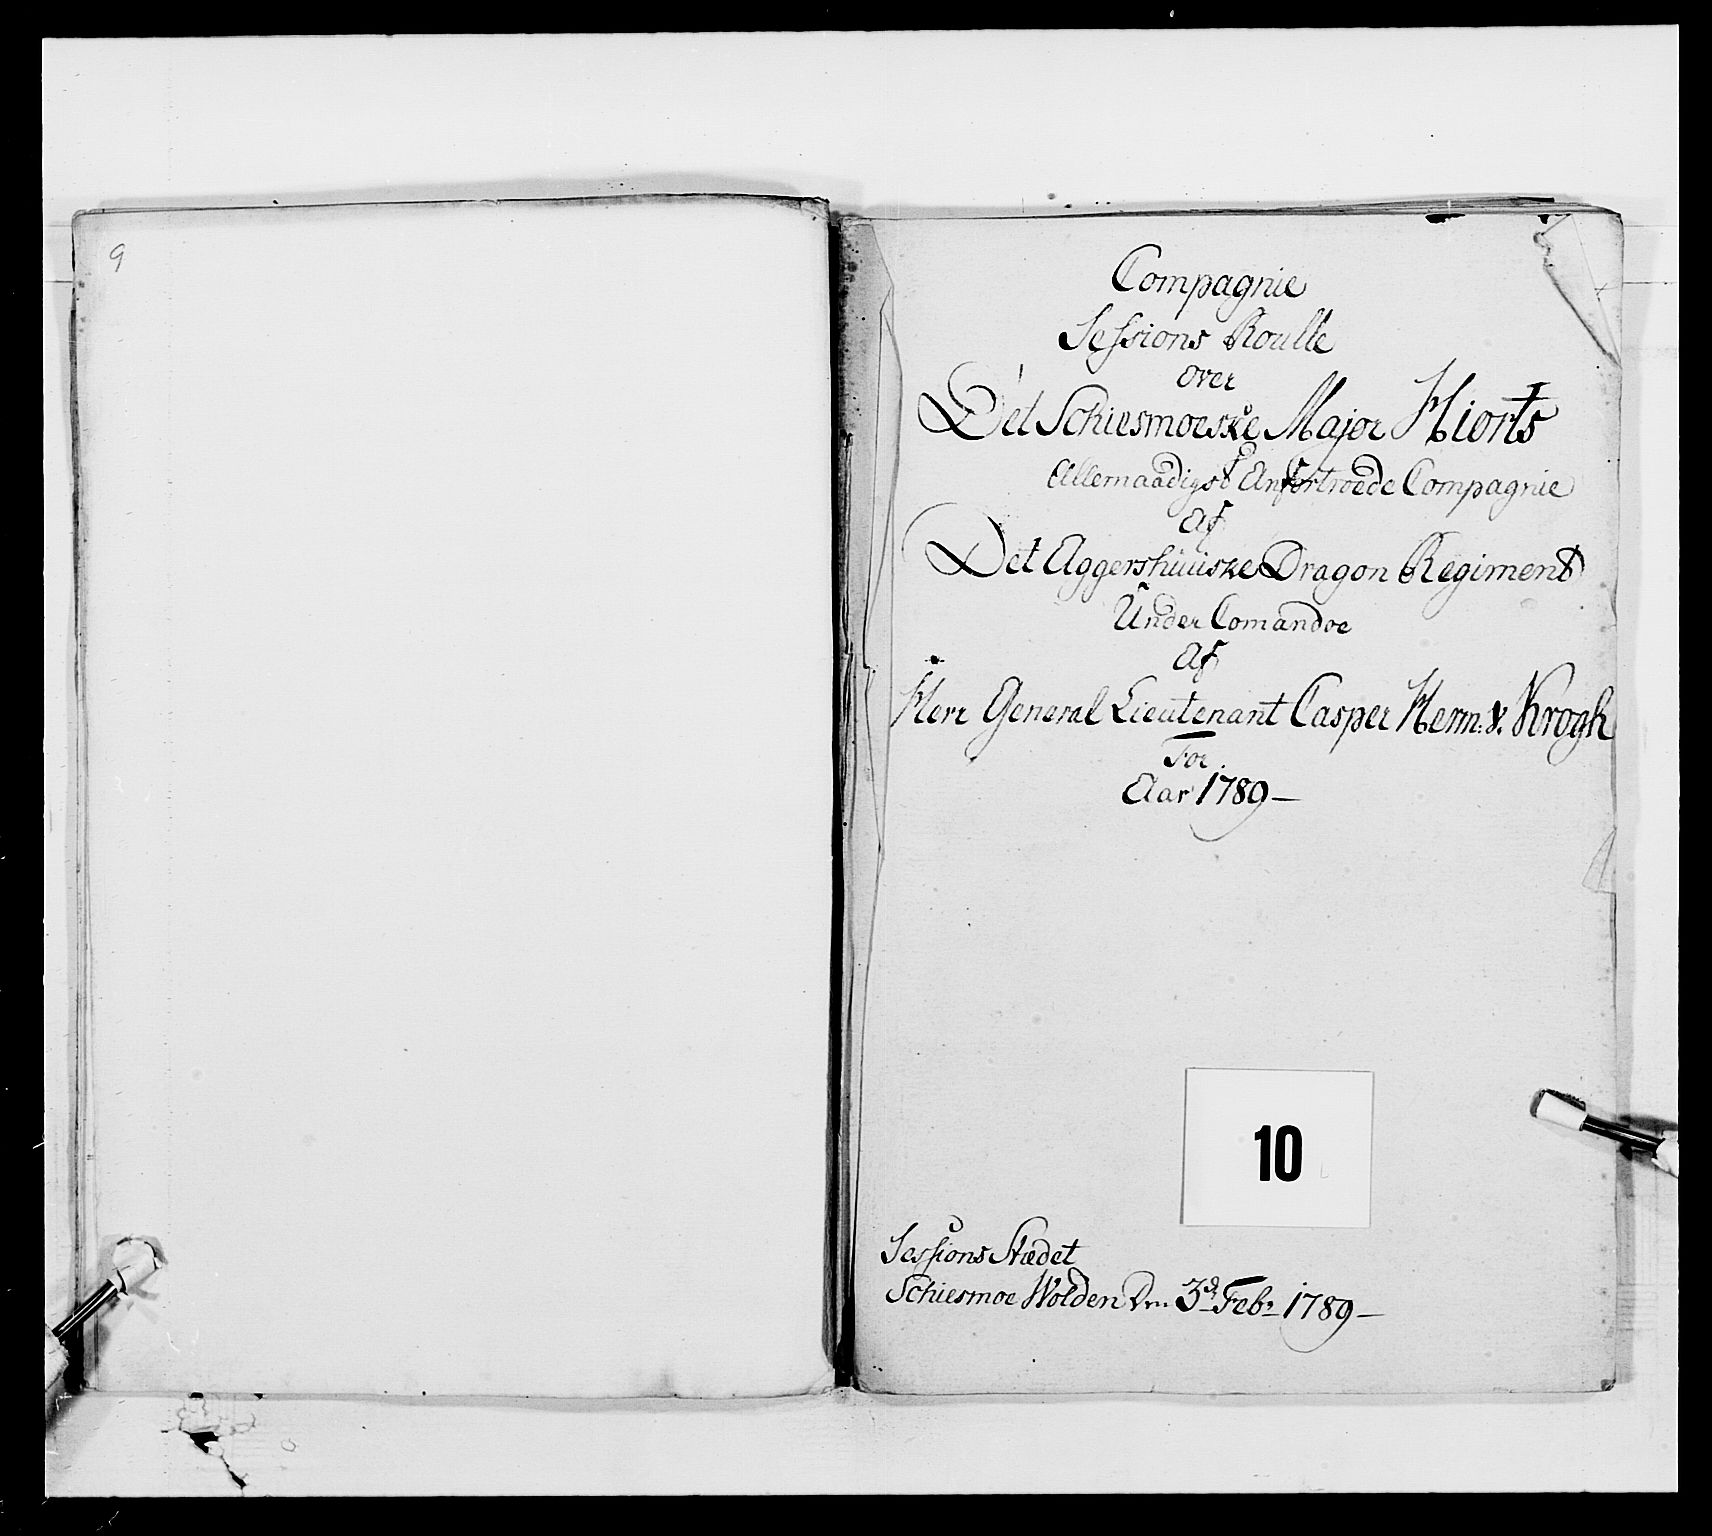 9
Compagnie
Sessions Roulle
over
Det Schiesmoeske Major Hiorts
Allernaadigst Anfortroede Compagnie
Af
Det Aggershuuiske Dragon Regiment
Under Comandoe
Af
Herr General Lieutenant Casper Herm: v. Krogh
For
Aar 1789 —
10
Sessions Stædet
Schiesmoe Wolden Den 3d Febr 1789 —